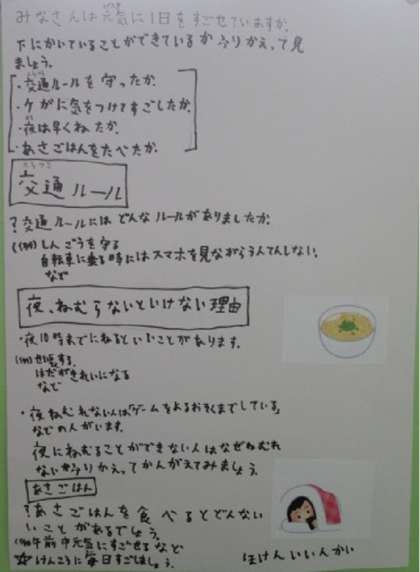 みなさんは元気に1日をすごせていますか。
下にかいていることができているかふりかえって見
ましょう。
・交通ルールを守ったか。
・ケガに気をつけてすごしたか。
・夜は早くねたか。
・あさごはんをたべたか。
交通ルール
?交通ルールにはどんなルールがありましたか。
(例)しんごうを守る
自転車に乗る時にはスマホを見ながらうんてんしない。
など
夜、ねむらないといけない理由
・夜10時までにねるといいことがあります。
(例)せが
はだがきれいになる
など
・夜ねむれない人はゲームをよるおそくまでしている。
などの人がいます。
夜にねむることができない人はなぜねむれ
ないかふりかえってかんがえてみましょう。
あさごはん
?あさごはんを食べるとどんない
いことがあるでしょう。
(例)午前中元気にすごせるなど
☆けんこうに毎日すごしましょう。
ほけんいいんかい